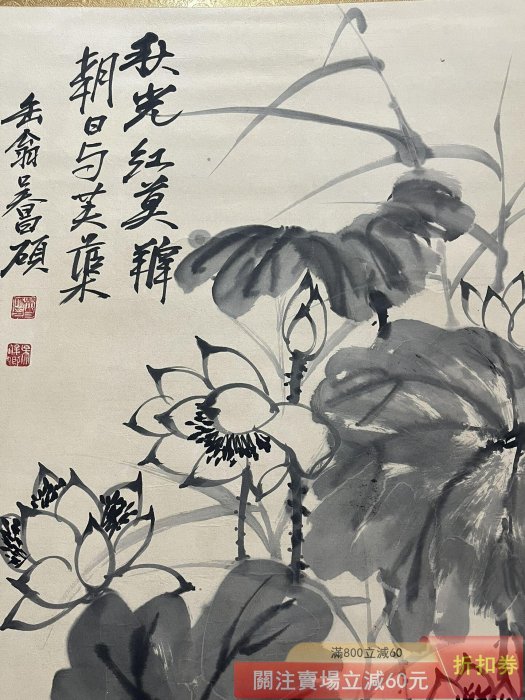 秋光红莫辨
朝日与芙蕖
缶翁吴昌硕
滿800立減60
關注賣場立減60元
折扣券